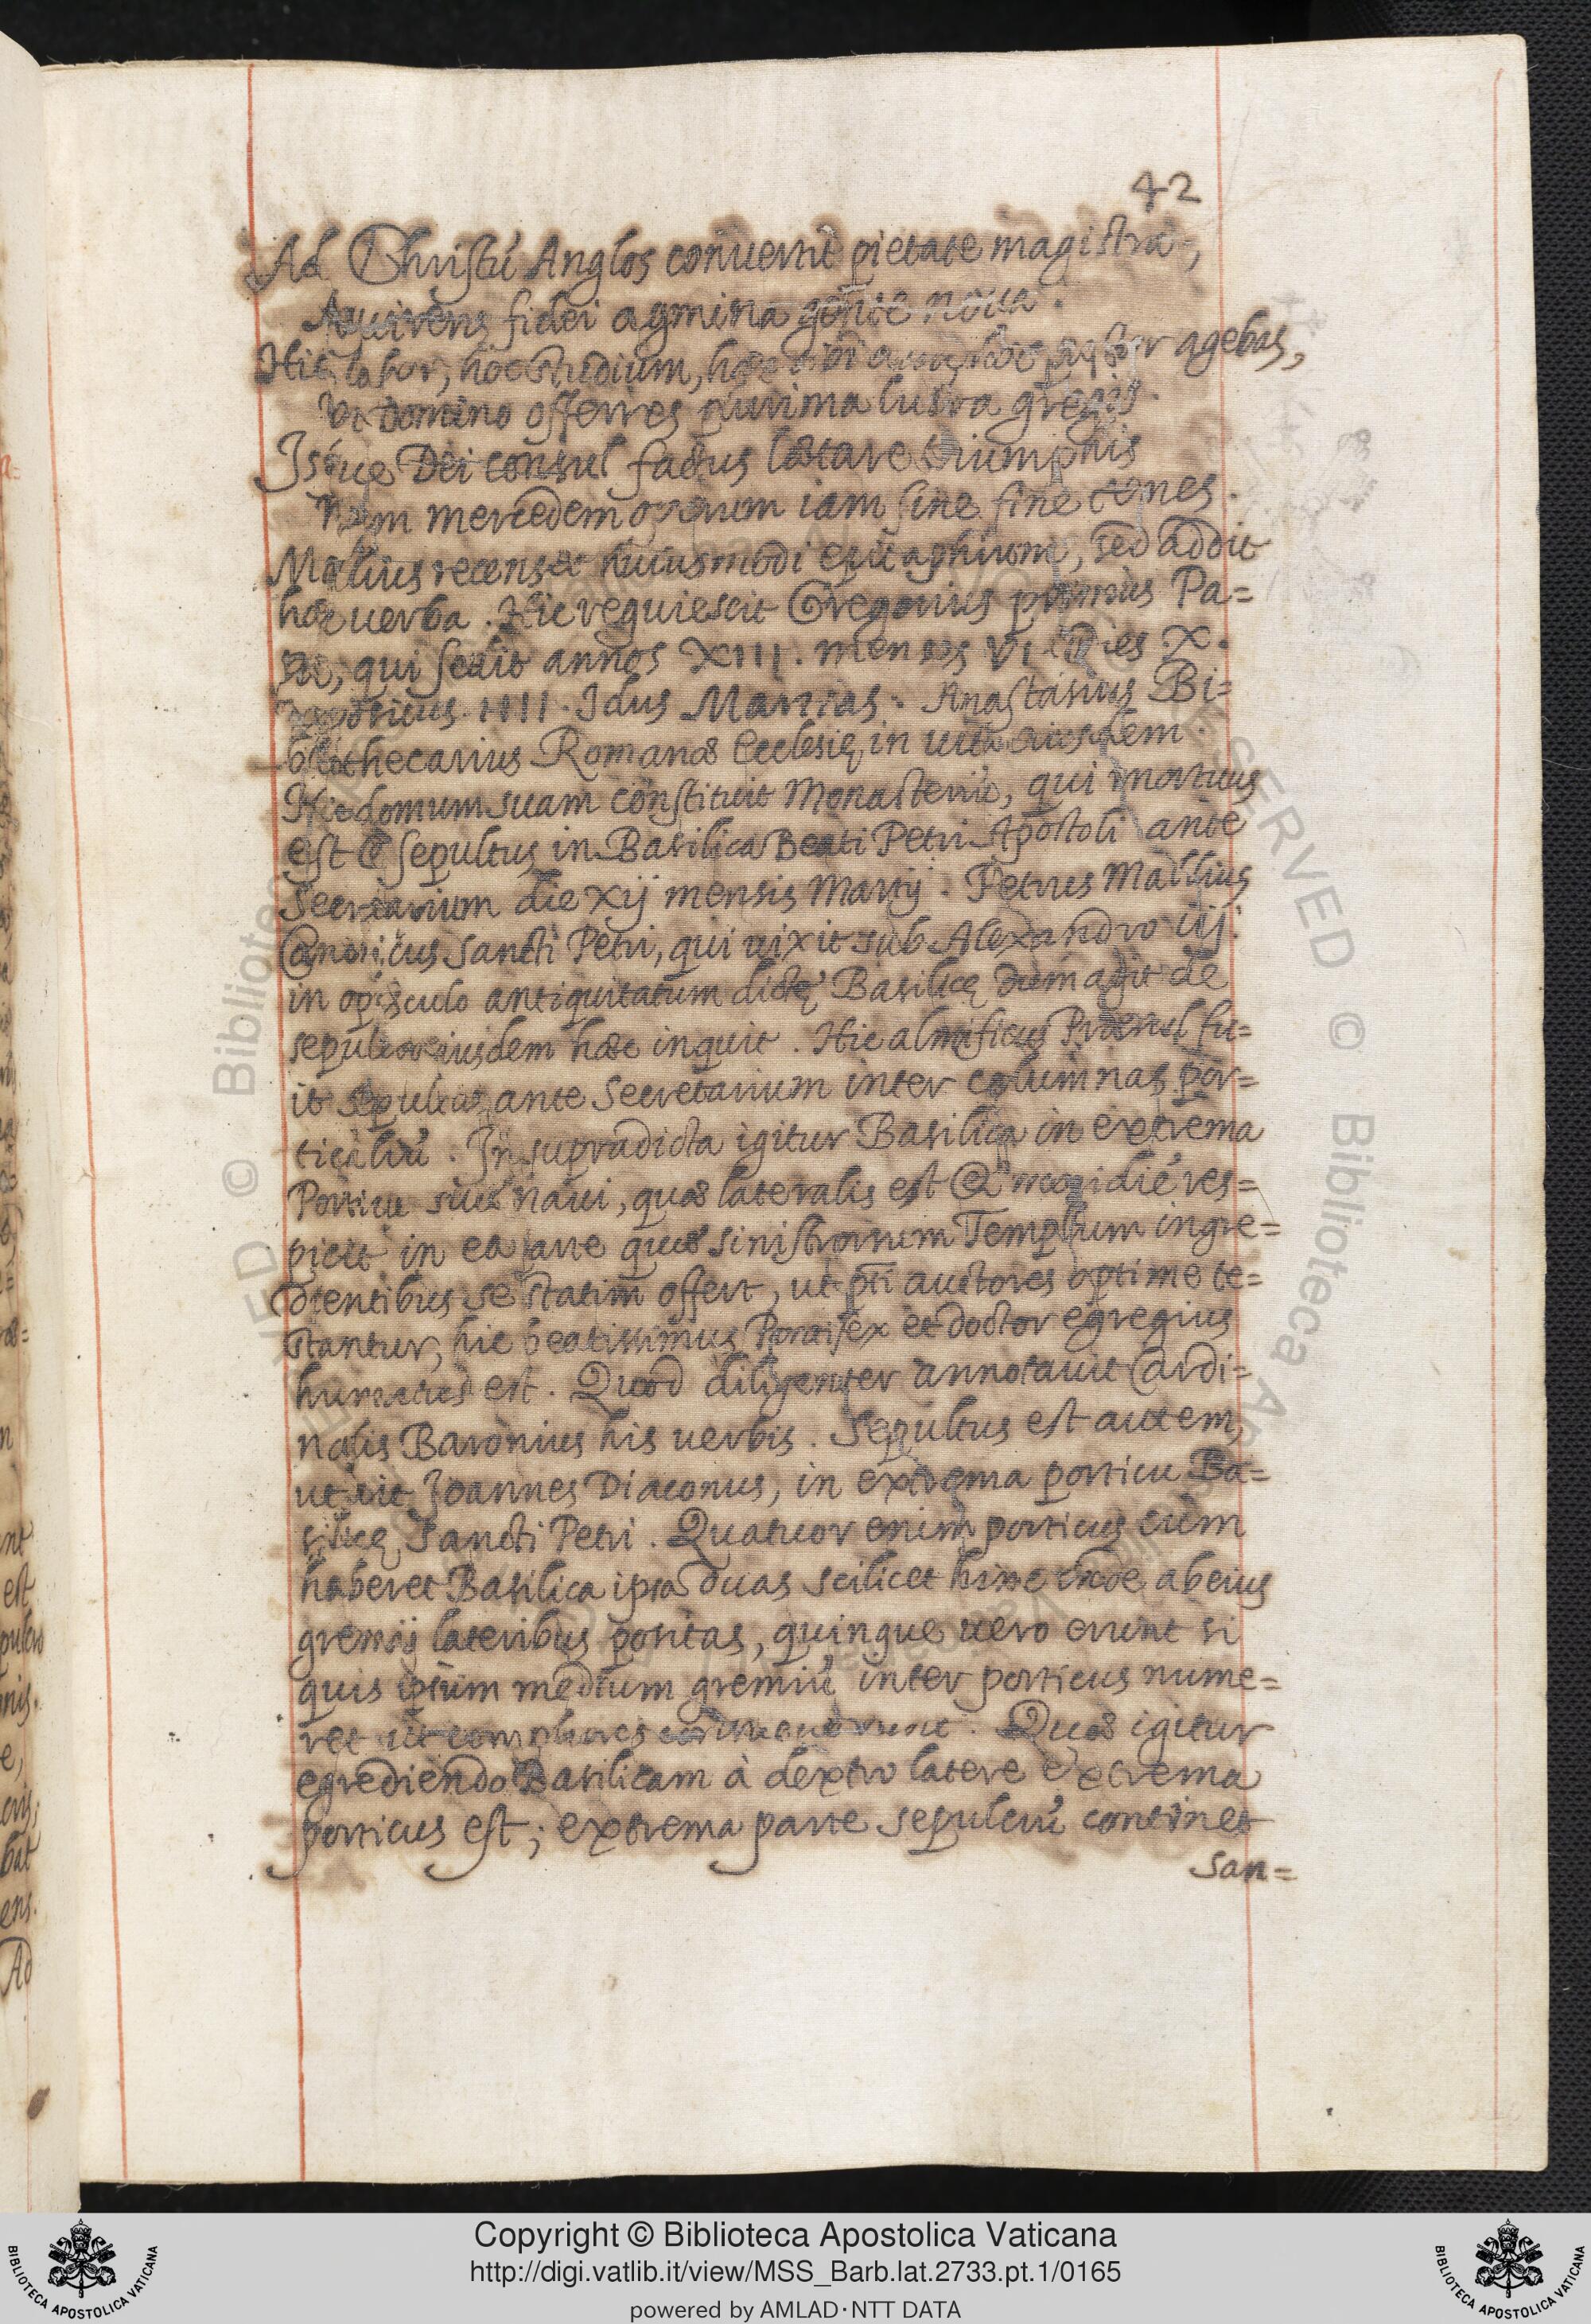 42
Ad Christū Anglos conuertit pietate magistra,
Aquirens fidei agmina gente noua.
Hic labor, hoc studium, hæc tibi cura, hoc pastor agebas,
Vt Domino offerres plurima lucra gregis.
Isque Dei consul factus lætare triumphis
Nam mercedem operum iam sine fine tenes.
Mallius recenset huiusmodi epitaphium, sed addit
hæc uerba. Hic requiescit Gregorius primus Pa=
pa, qui sedit annos XIII. menses VI. Dies X.
Depositus IIII. Idus Martias. Anastasius Bi=
bliothecarius Romanæ Ecclesię in uita eiusdem.
Hic domum suam constituit Monasteriū, qui mortuus
est & sepultus in Basilica Beati Petri Apostoli ante
Secretarium die xij mensis Martij. Petrus Mallius
Canonicus Sancti Petri, qui uixit sub Alexandro iij.
in opusculo antiquitatum dictę Basilicę dum agit de
sepulcro eiusdem hæc inquit. Hic almificus Præsul fu=
it sepultus ante Secretarium inter columnas por=
ticaliū. In supradicta igitur Basilica in extrema
Porticu siue naui, quæ lateralis est & meridiē res=
picit in ea parte quæ sinistrorsum Templum ingre=
dientibus se statim offert, ut pti auctores optime te=
stantur, hic beatissimus Pontifex et doctor egregius
humatus est. Quod diligenter annotauit Cardi=
nalis Baronius his uerbis. Sepultus est autem,
ut ait Joannes Diaconus, in extrema porticu Ba=
silicę Sancti Petri. Quatuor enim porticus cùm
haberet Basilica ipsa duas scilicet hinc inde ab eius
gremij lateribus positas, quinque uero erunt si
quis ipsum medium gremiū inter porticus nume=
ret ut complures Quæ igitur
egrediendo Basilicam à dextro latere extrema
porticus est; extrema parte sepulcrū continet
San=
Copyright © Biblioteca Apostolica Vaticana
http://digi.vatlib.it/view/MSS_Barb.lat.2733.pt.1/0165
powered by AMLAD·NTT DATA
BIBLIOTECA APOSTOLICA VATICANA
BIBLIOTECA APOSTOLICA VATICANA